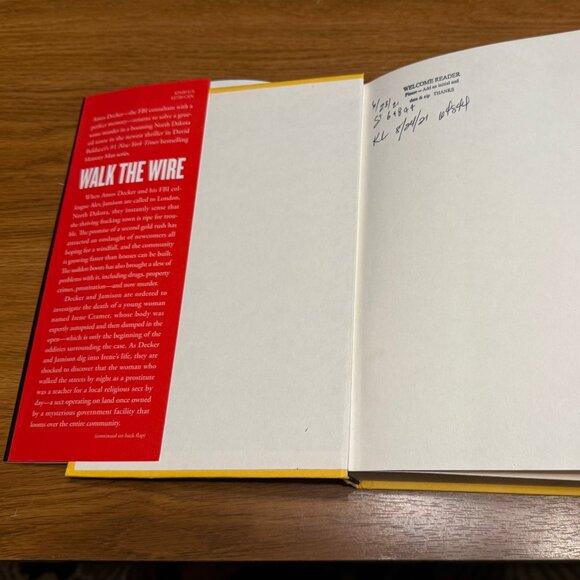 $29.00 U.S.
Amos Decker—the FBI consultant with a
perfect memory—returns to solve a grue-
some murder in a booming North Dakota
oil town in the newest thriller in David
Baldacci's #1 New York Times bestselling
Memory Man series.
WALK THE WIRE
When Amos Decker and his FBI col-
league Alex Jamison are called to London,
North Dakota, they instantly sense that
the thriving fracking town is ripe for trou-
ble. The promise of a second gold rush has
attracted an onslaught of newcomers all
hoping for a windfall, and the community
is growing faster than houses can be built.
The sudden boom has also brought a slew of
problems with it, including drugs, property
crimes, prostitution—and now murder.
Decker and Jamison are ordered to
investigate the death of a young woman
named Irene Cramer, whose body was
expertly autopsied and then dumped in the
open—which is only the beginning of the
oddities surrounding the case. As Decker
and Jamison dig into Irene's life, they are
shocked to discover that the woman who
walked the streets by night as a prostitute
was a teacher for a local religious sect by
day—a sect operating on land once owned
by a mysterious government facility that
looms over the entire community.
(continued on back flap)
WELCOME READER
Please - Add an initial and
date & zip THANKS
KL 8/24/21